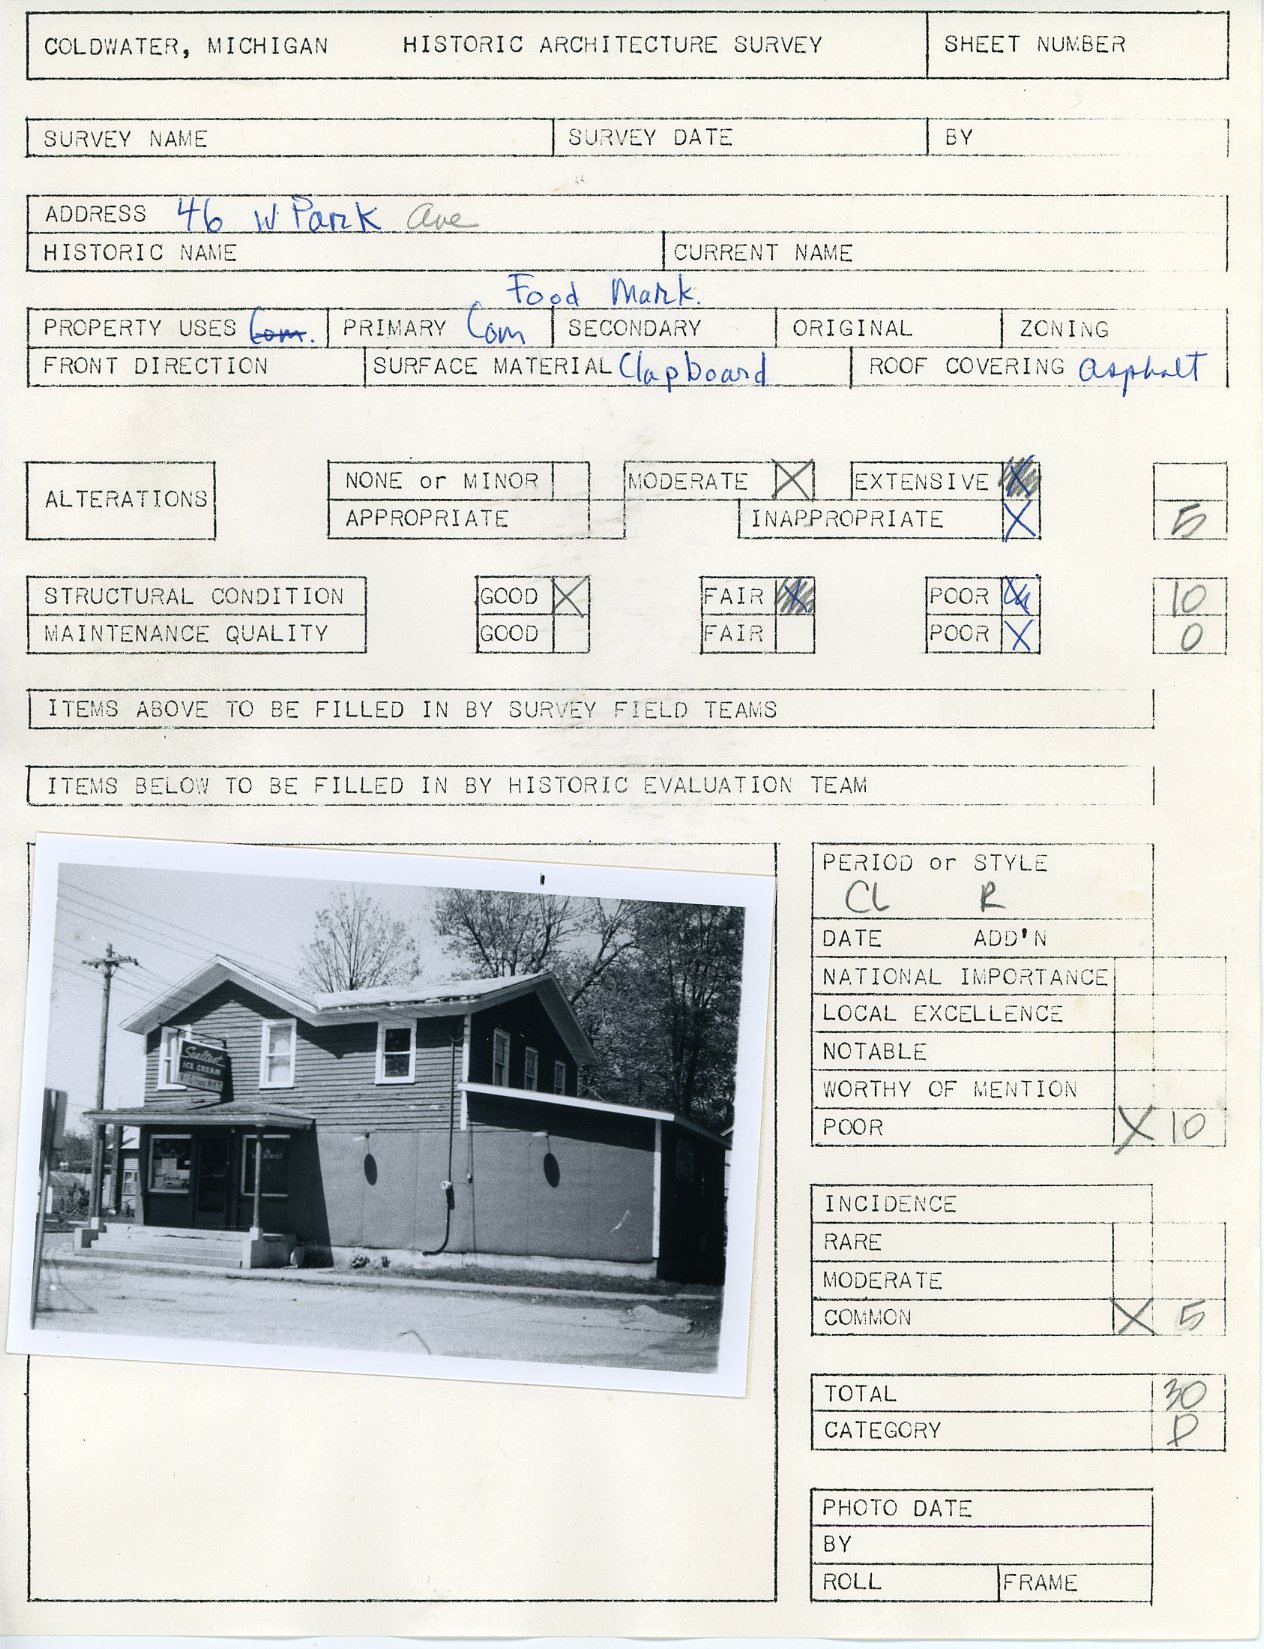 COLDWATER, MICHIGAN HISTORIC ARCHITECTURE SURVEY SHEET NUMBER
SURVEY NAME SURVEY DATE BY
ADDRESS 46 W. Park Ave
HISTORIC NAME CURRENT NAME
Food Mark.
PROPERTY USES Com. PRIMARY Com SECONDARY ORIGINAL ZONING
FRONT DIRECTION SURFACE MATERIAL Clapboard ROOF COVERING asphalt
ALTERATIONS NONE or MINOR MODERATE X EXTENSIVE X
APPROPRIATE INAPPROPRIATE X 5
STRUCTURAL CONDITION GOOD X FAIR X POOR 10
MAINTENANCE QUALITY GOOD FAIR POOR X 0
ITEMS ABOVE TO BE FILLED IN BY SURVEY FIELD TEAMS
ITEMS BELOW TO BE FILLED IN BY HISTORIC EVALUATION TEAM
Sealtest
ICE CREAM
PERIOD or STYLE
CL R
DATE ADD'N
NATIONAL IMPORTANCE
LOCAL EXCELLENCE
NOTABLE
WORTHY OF MENTION
POOR X 10
INCIDENCE
RARE
MODERATE
COMMON X 5
TOTAL 30
CATEGORY D
PHOTO DATE
BY
ROLL FRAME